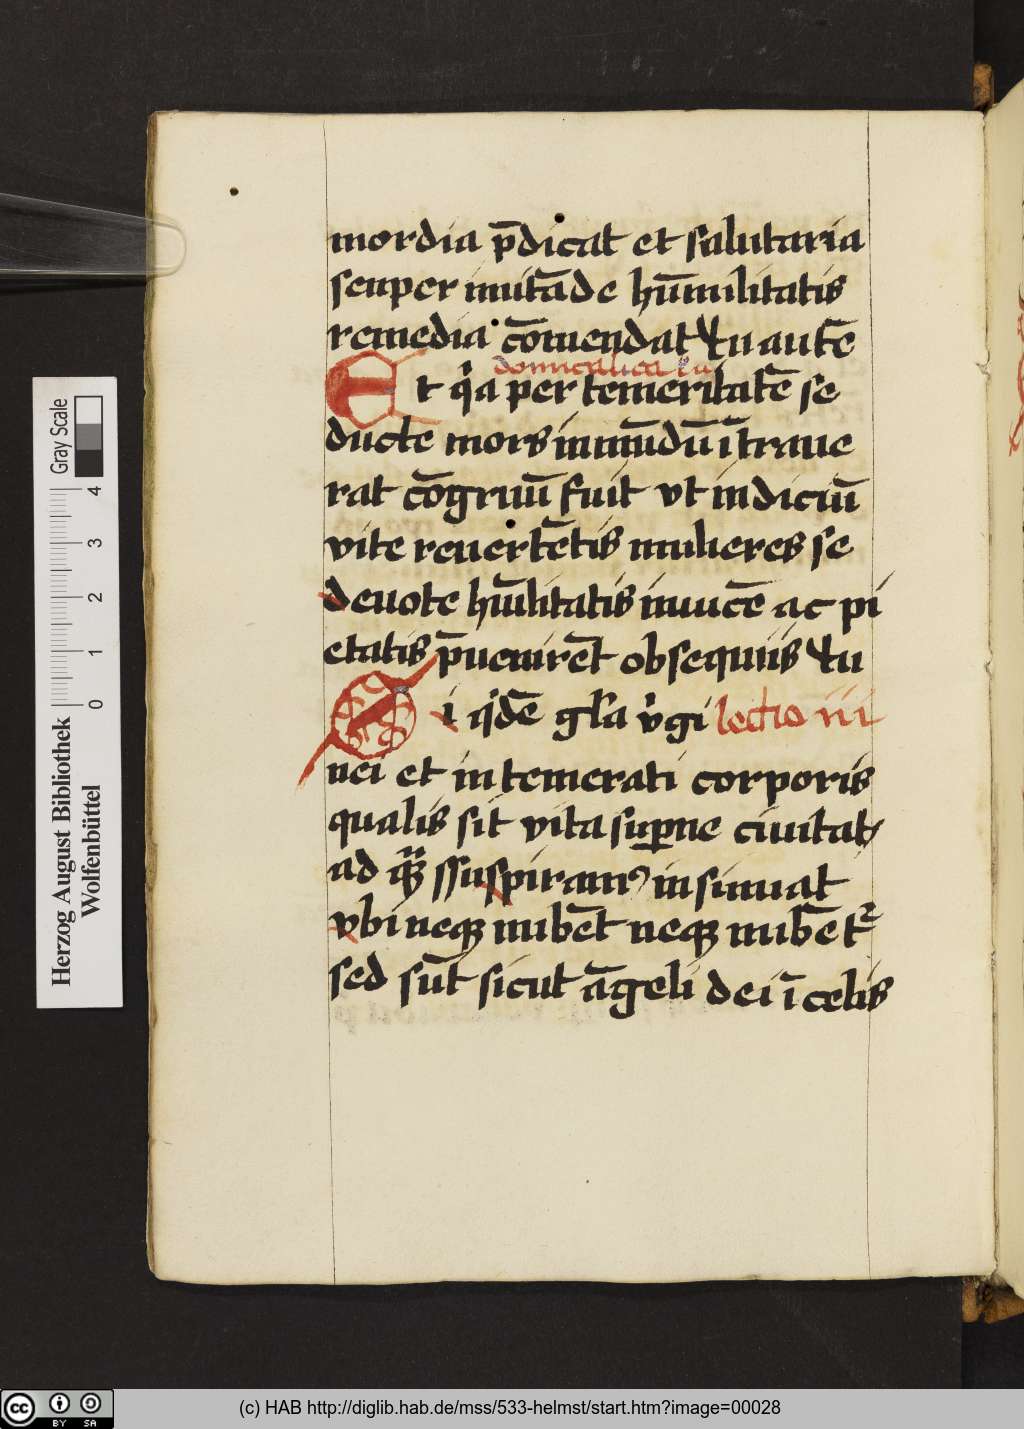 mordia p̄dicat et salutaria
semper imitāde hūmilitatis
remedia cōmendat tu autē
dominicalica ſu
Et qͥa per temeritatē se
ducte mors in mūdū ītraue
rat cōgruū fuit vt indiciū
vite reuertētis mulieres se
deuote hūlitatis inuicē ac pi
etatis p̄uenirēt obsequiis tu
i qͥdē gl̄a vͥgi lectio iii
nei et intemerati corporis
qualis sit vita suꝑne ciuitat
ad quā ssuspiramꝰ insinuat
vbi neqꝫ nubēt neqꝫ nubētᷣ
sed sūt sicut āgeli dei ī celis
Gray Scale
4
3
2
1
0
Herzog August Bibliothek
Wolfenbüttel
cc BY SA
(c) HAB http://diglib.hab.de/mss/533-helmst/start.htm?image=00028